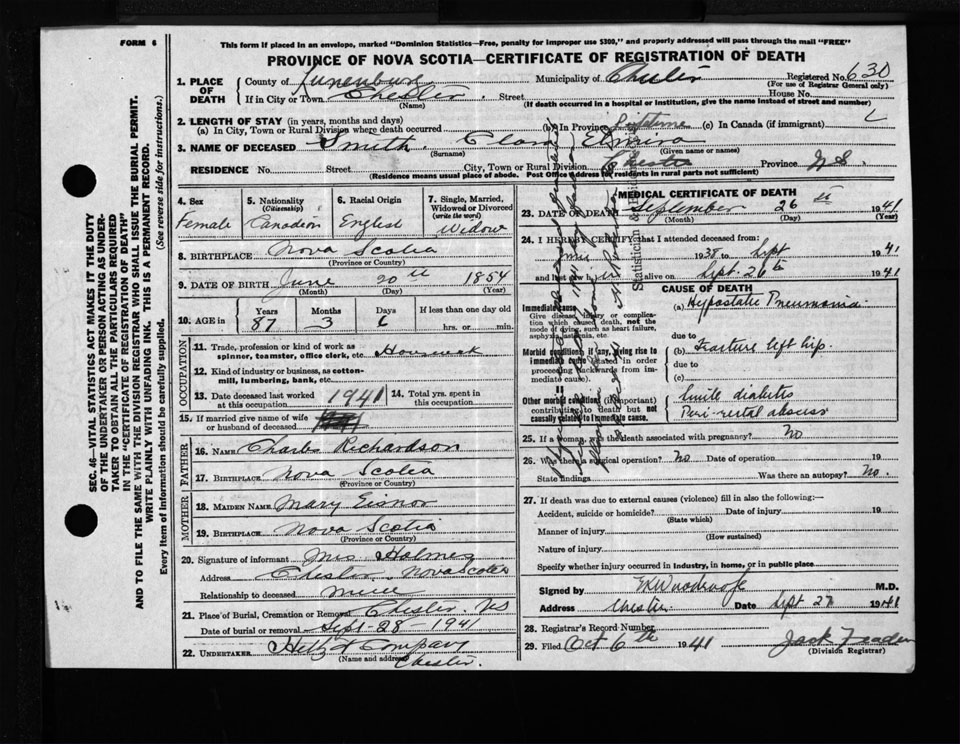 FORM 6
This form if placed in an envelope, marked "Dominion Statistics—Free, penalty for improper use $300," and properly addressed will pass through the mail "FREE"
PROVINCE OF NOVA SCOTIA—CERTIFICATE OF REGISTRATION OF DEATH
1. PLACE OF DEATH County of Lunenburg Municipality of Chester Registered No. 630
(For use of Registrar General only)
If in City or Town Chester. Street House No.
(Name) (If death occurred in a hospital or institution, give the name instead of street and number)
2. LENGTH OF STAY (in years, months and days)
(a) In City, Town or Rural Division where death occurred (b) In Province Lifetime (c) In Canada (if immigrant)
3. NAME OF DECEASED Smith Clara
(Surname) (Given name or names)
RESIDENCE No. Street City, Town or Rural Division Chester Province N.S.
(Residence means usual place of abode. Post Office Address for residents in rural parts not sufficient)
4. Sex 5. Nationality (Citizenship) 6. Racial Origin 7. Single, Married, Widowed or Divorced (write the word)
Female Canadian English Widow
8. BIRTHPLACE Nova Scotia
(Province or Country)
9. DATE OF BIRTH June 20th 1854
(Month) (Day) (Year)
10. AGE in Years Months Days If less than one day old
87 3 6 hrs. or min.
OCCUPATION
11. Trade, profession or kind of work as spinner, teamster, office clerk, etc. Housework
12. Kind of industry or business, as cotton-mill, lumbering, bank, etc.
13. Date deceased last worked at this occupation 1941 14. Total yrs. spent in this occupation
15. If married give name of wife or husband of deceased
FATHER
16. NAME Charles Richardson
17. BIRTHPLACE Nova Scotia
(Province or Country)
MOTHER
18. MAIDEN NAME Mary Eisnor
19. BIRTHPLACE Nova Scotia
(Province or Country)
20. Signature of informant Holmes
Address Chester Nova Scotia
Relationship to deceased
21. Place of Burial, Cremation or Removal Chester. NS
Date of burial or removal Sept-28-1941
22. UNDERTAKER Company
(Name and address) Chester.
MEDICAL CERTIFICATE OF DEATH
23. DATE OF DEATH September 26th 1941
(Month) (Day) (Year)
24. I HEREBY CERTIFY that I attended deceased from:
June 1938 to Sept 1941
and last saw h alive on Sept. 26th 1941
CAUSE OF DEATH
Immediate cause (a) Hypostatic Pneumonia
Give disease, injury or complication which caused death, not the mode of dying, such as heart failure, asphyxia, asthenia, etc.
due to
Morbid conditions, if any, giving rise to immediate cause (stated in order proceeding backwards from immediate cause). (b) Fracture left hip.
due to
(c)
Other morbid conditions (if important) contributing to death but not causally related to immediate cause. Senile diabetes
25. If a woman, was the death associated with pregnancy? No
26. Was there a surgical operation? No Date of operation 19
State findings Was there an autopsy? No.
27. If death was due to external causes (violence) fill in also the following:—
Accident, suicide or homicide? Date of injury 19
(State which)
Manner of injury
(How sustained)
Nature of injury
Specify whether injury occurred in Industry, in home, or in public place
Signed by M.D.
Address Chester Date Sept 27 1941
28. Registrar's Record Number
29. Filed Oct 6th 1941 Jack
(Division Registrar)
SEC. 46—VITAL STATISTICS ACT MAKES IT THE DUTY OF THE UNDERTAKER OR PERSON ACTING AS UNDERTAKER TO OBTAIN ALL THE PARTICULARS REQUIRED IN THE "CERTIFICATE OF REGISTRATION OF DEATH"
AND TO FILE THE SAME WITH THE DIVISION REGISTRAR WHO SHALL ISSUE THE BURIAL PERMIT.
WRITE PLAINLY WITH UNFADING INK. THIS IS A PERMANENT RECORD.
Every item of information should be carefully supplied. (See reverse side for instructions.)